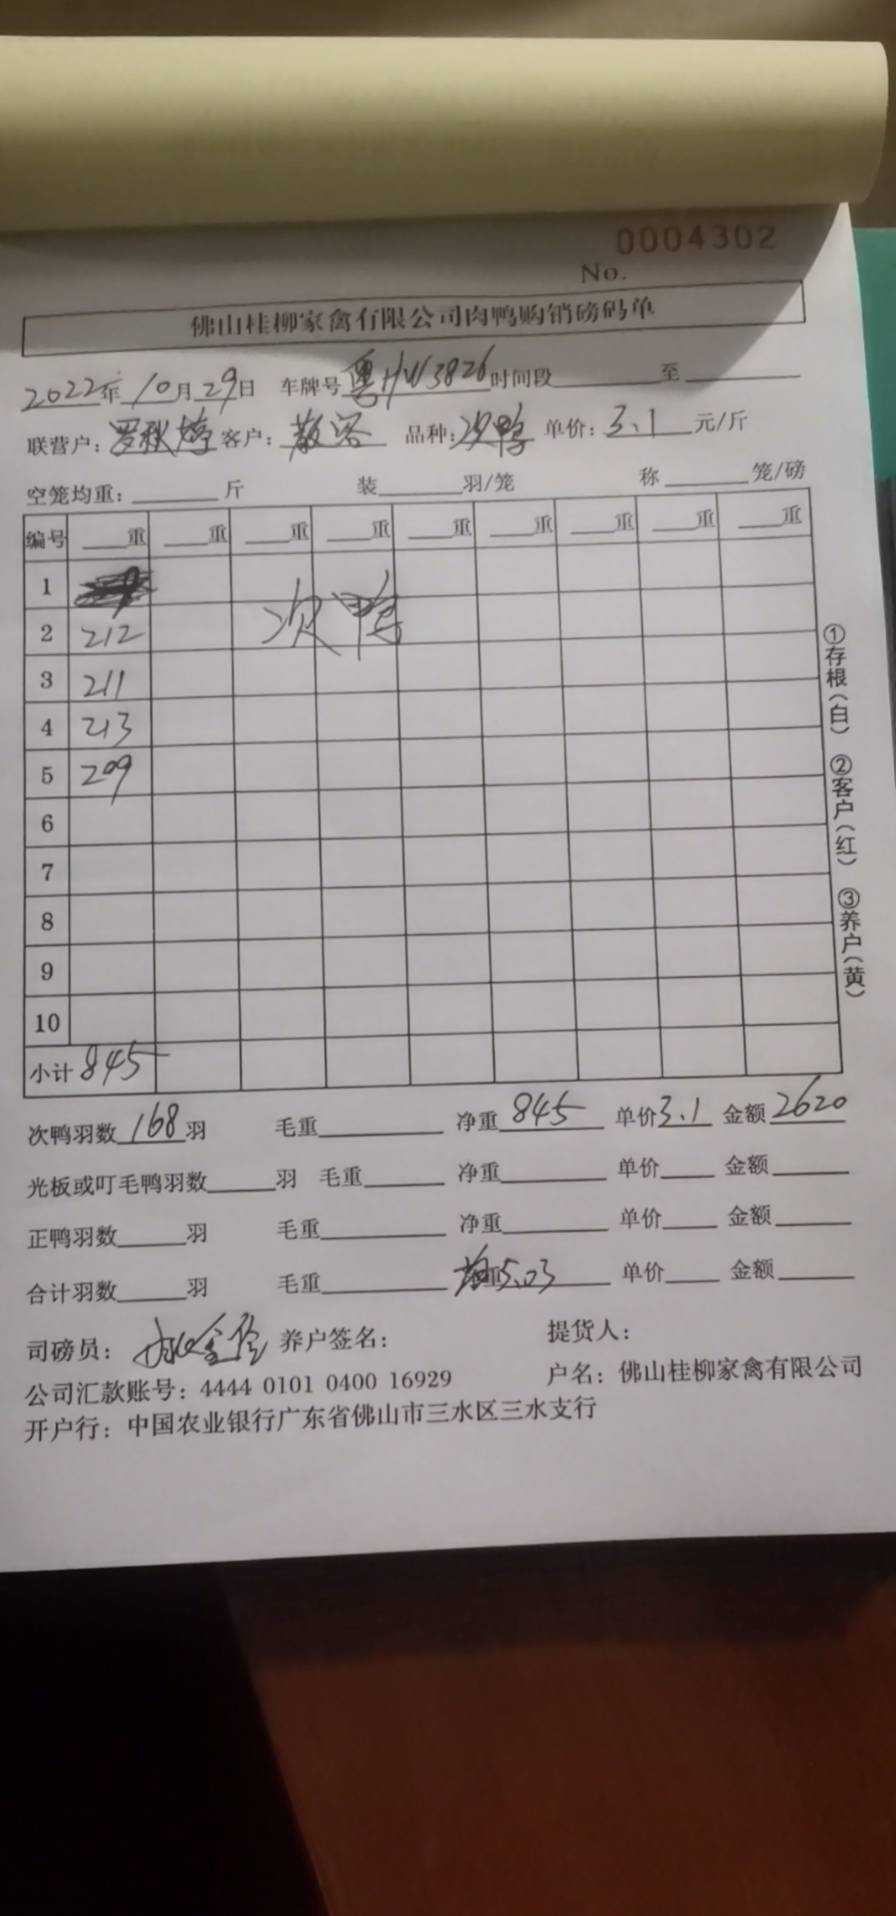 0004302
No.
佛山桂柳家禽有限公司肉鸭购销磅码单
2022年10月29日 车牌号粤HW3826时间段 至
联营户：罗秋婷 客户：散客 品种：次鸭 单价：3.1元/斤
空笼均重： 斤 装 羽/笼 称 笼/磅
编号 重 重 重 重 重 重 重 重 重
1
2 212 次鸭
3 211
4 213
5 209
6
7
8
9
10
小计 845
①存根（白） ②客户（红） ③养户（黄）
次鸭羽数168羽 毛重 净重845 单价3.1 金额2620
光板或叮毛鸭羽数 羽 毛重 净重 单价 金额
正鸭羽数 羽 毛重 净重 单价 金额
合计羽数 羽 毛重 5.03 单价 金额
司磅员： 养户签名： 提货人：
公司汇款账号：4444 0101 0400 16929 户名：佛山桂柳家禽有限公司
开户行：中国农业银行广东省佛山市三水区三水支行